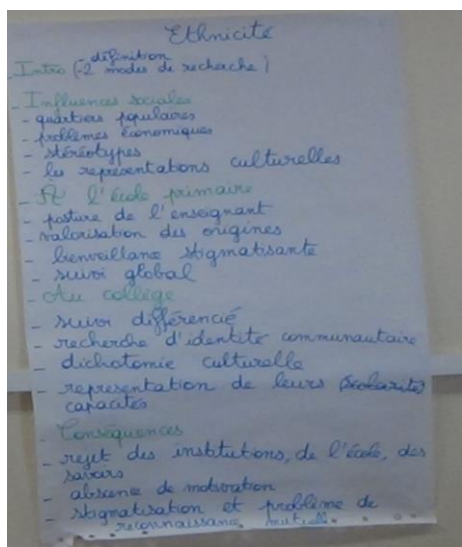 Ethnicité
- définition
- Intro (-2 modes de recherche)
- Influences sociales
- quartiers populaires
- problèmes économiques
- stéréotypes
- les représentations culturelles
- A l'école primaire
- posture de l'enseignant
- valorisation des origines
- bienveillance stigmatisante
- suivi global
- Au collège
- suivi différencié
- recherche d'identité communautaire
- dichotomie culturelle
- représentation de leurs (scolarité)
capacités
- Conséquences
- rejet des institutions, de l'école, des
savoirs
- absence de motivation
- stigmatisation et problème de
reconnaissance mutuelle